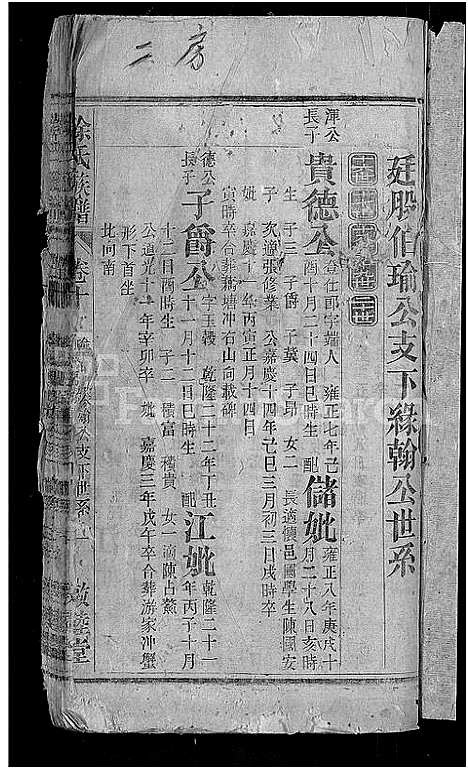 二房
廷殷伯瑜公支下綠翰公世系
渾公
長子
貴德公
登仕郎字端人 雍正七年己
酉十月二十四日巳時生 配
儲妣
雍正八年庚戌十
月二十八日亥時
生 子三 子爵 子冀 子昂 女二 長適懷邑國學生陳國安
次適張修業 公嘉慶十四年己巳三月初三日戌時卒
妣 嘉慶十一年丙寅正月十四日
寅時卒合葬 塘冲石山向載碑
德公
長子
子爵公
字玉樓 乾隆二十二年丁丑
十一月十二日巳時生 配
江妣
乾隆二十一
年丙子十月
十二日酉時生 子二 積富 積貴 女一適陳占鰲
公道光十一年辛卯卒 妣 嘉慶三年戊午卒合葬游家冲蟹
形下首坐
北向南
徐氏族譜 卷十 支下世系